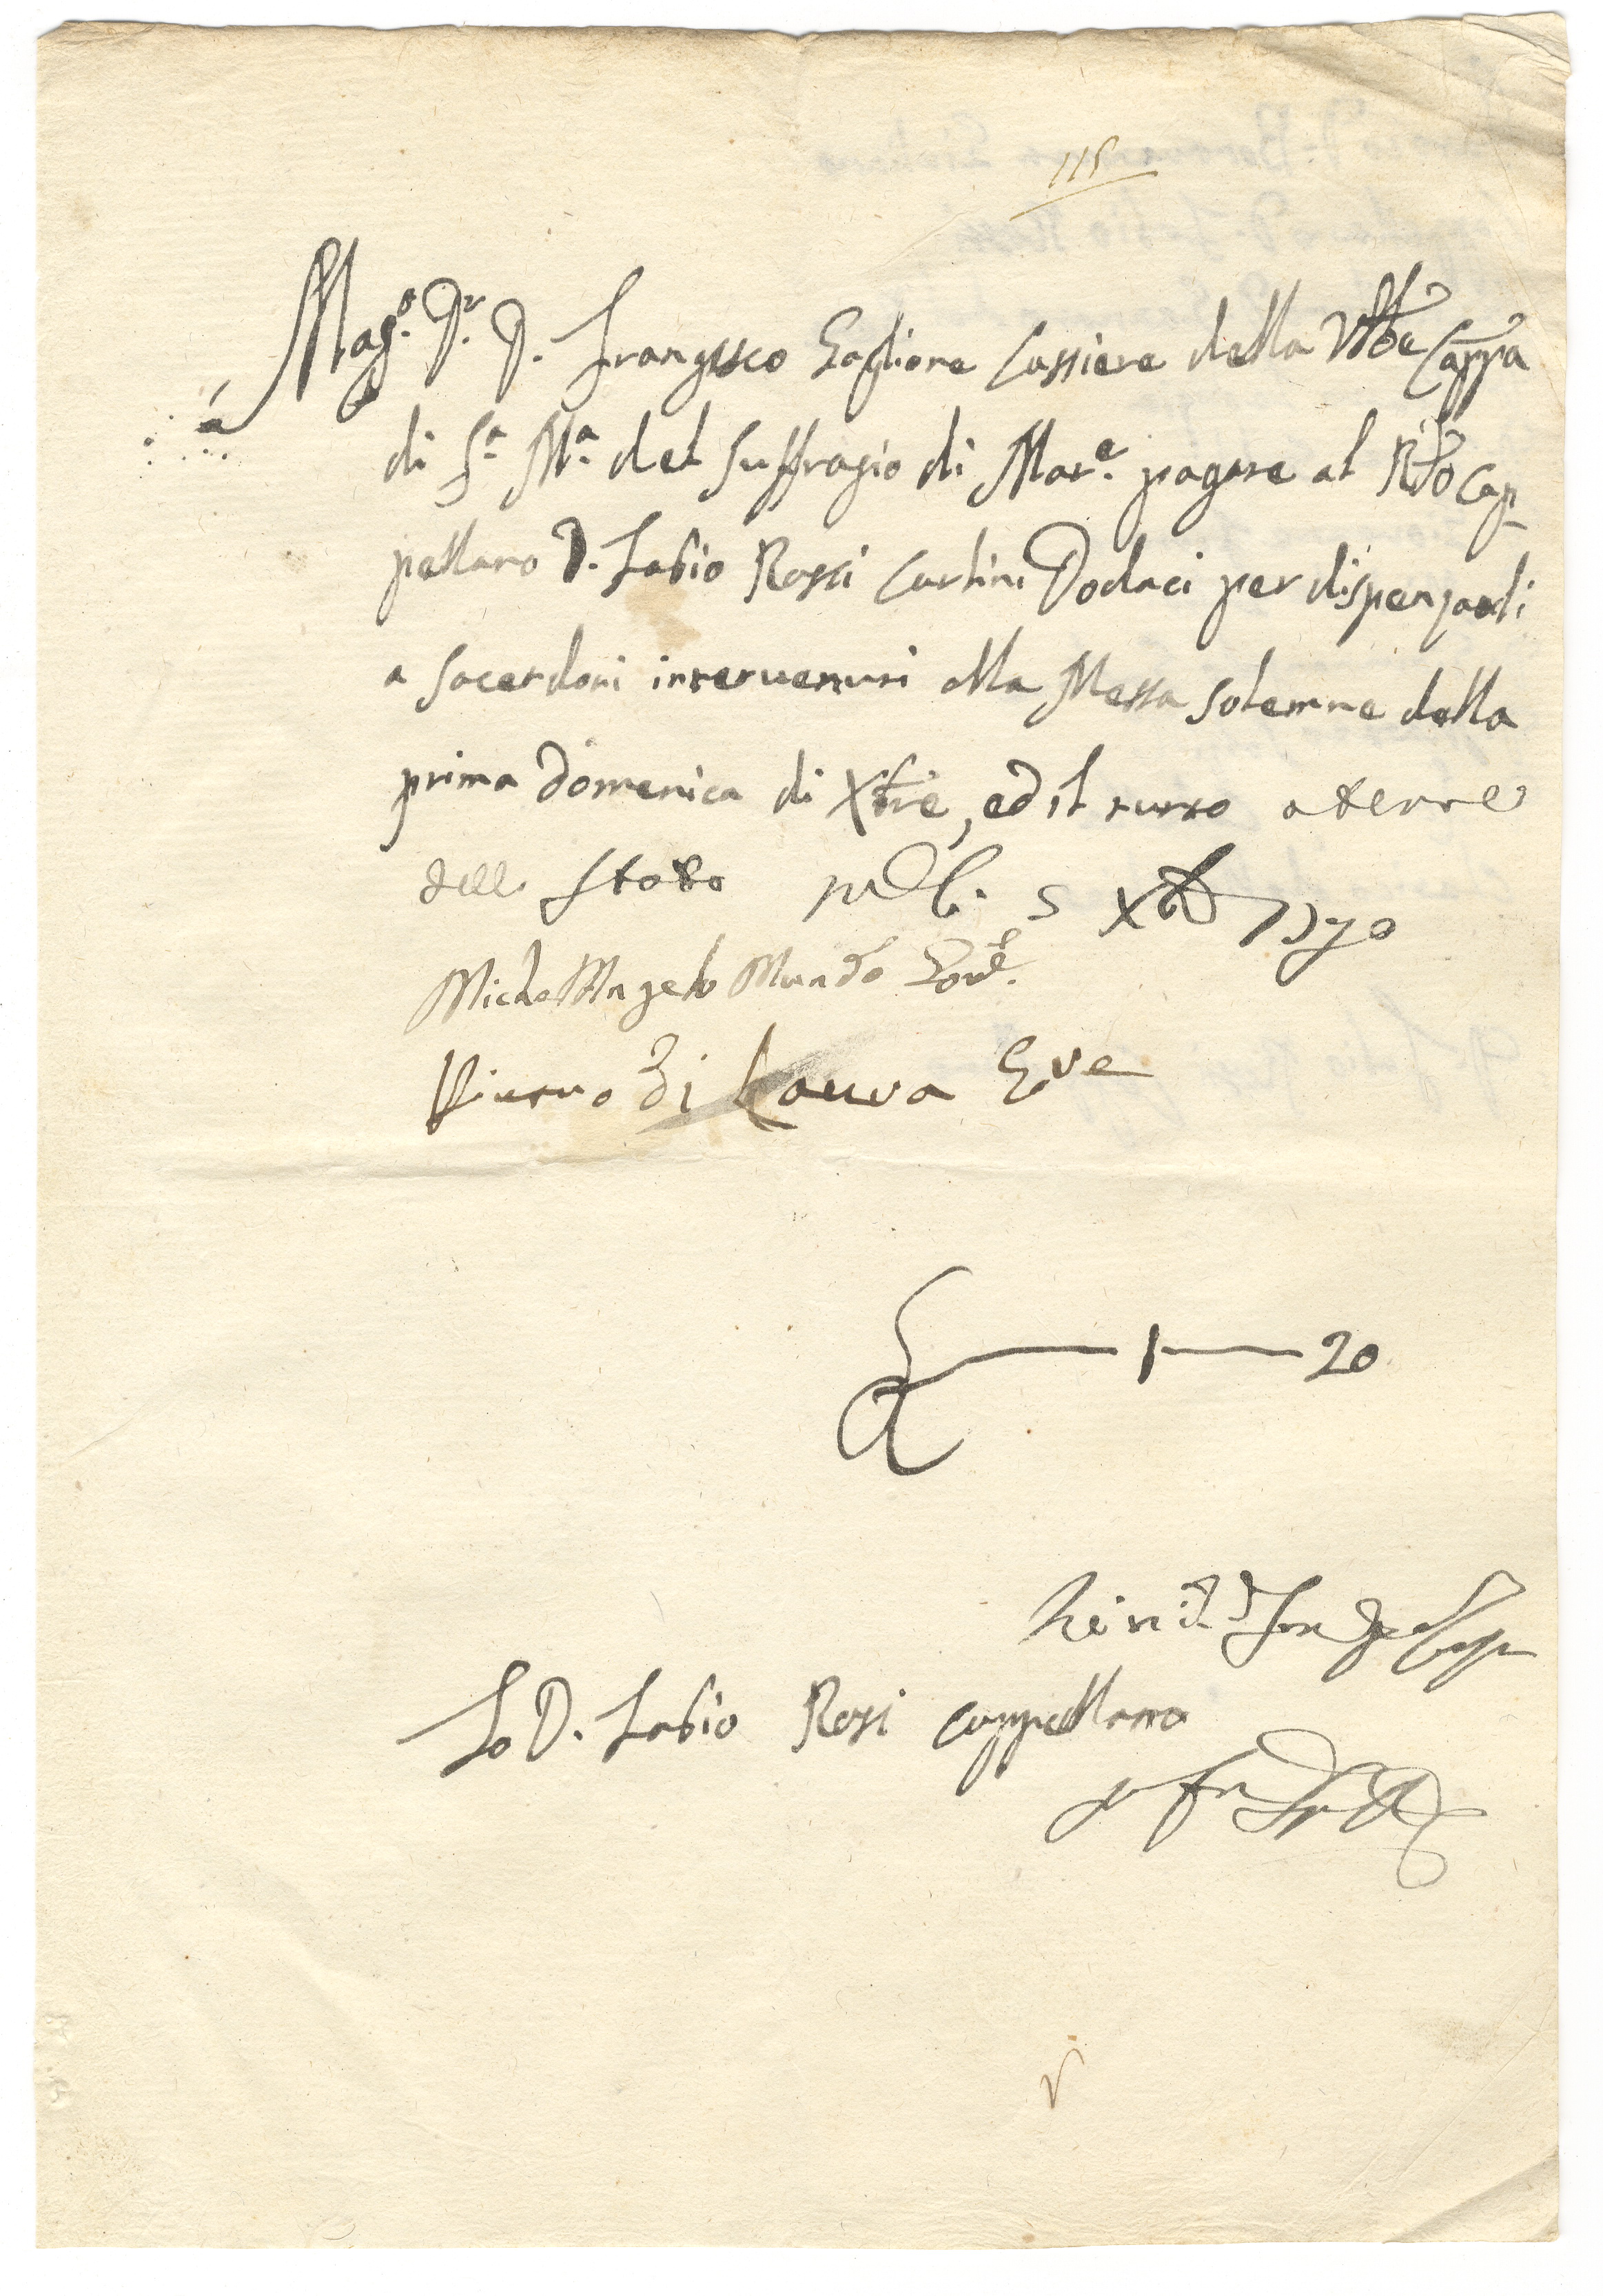 115
Mag.o D.r D. Francesco Gaglione Cassiere della Vble Cappa
di S.a M.a del Suffragio di Mar.e pagare al Rdo Cap-
pellano D. Fabio Rossi Carlini Dodaci per dispenzarli
a Sacerdoti intervenuti alla Messa Solemne della
prima Domenica di Xbre, ed il tutto a tenore
dello Stato 5 Xbre 1770
Michel'Angelo Mundo Gov.e
di Gove
1 20
Io D. Fabio Rossi Cappellano